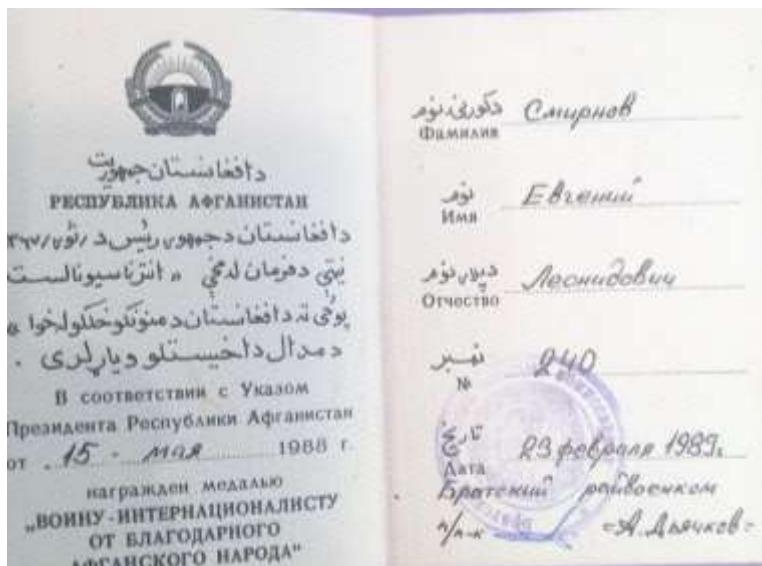 دافغانستان جمهوریت
РЕСПУБЛИКА АФГАНИСТАН
دافغانستان دجمهور رئیس د
نیټی دفرمان لمخی » انترناسیونالست
پوځی ته دافغانستان دمنونکو خلکو لخوا «
دمدال داخیستلو ویاړلری .
В соответствии с Указом
Президента Республики Афганистан
от . 15 - мая 1988 г.
награжден медалью
„ВОИНУ-ИНТЕРНАЦИОНАЛИСТУ
ОТ БЛАГОДАРНОГО
АФГАНСКОГО НАРОДА"
دکورنۍ نوم
Фамилия Смирнов
نوم
Имя Евгений
دپلار نوم
Отчество Леонидович
نمبر
№ 240
تاریخ
Дата 23 февраля 1989г.
Братский райвоенком
п/п-к =А.Дьячков=